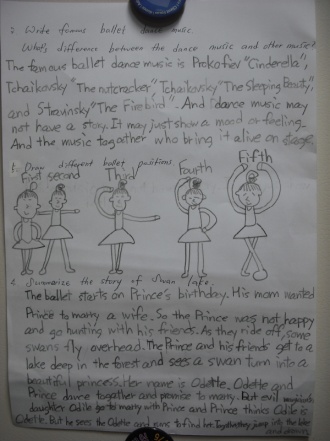 : Write famous ballet dance music.
What's difference between the dance music and other music?
The famous ballet dance music is Prokofiev "Cinderella",
Tchaikovsky "The nutcracker", Tchaikovsky "The Sleeping Beauty",
and Stravinsky "The Firebird". And dance music may
not have a story. It may just show a mood or feeling.
And the music togather who bring it alive on stage.
Draw different ballet positions.
First second Third Fourth Fifth
Summarize the story of Swan lake.
The ballet starts on Prince's birthday. His mom wanted
Prince to marry a wife. So the Prince was not happy
and go hunting with his friends. As they ride off, some
swans fly overhead. The Prince and his friends get to a
lake deep in the forest and sees a swan turn into a
beautiful princess. Her name is Odette. Odette and
Prince dance togather and promise to marry. But evil
daughter Odile go to marry with Prince and Prince thinks Odile is
Odette. But he sees the Odette and runs to find her. Togather they jump into the lake